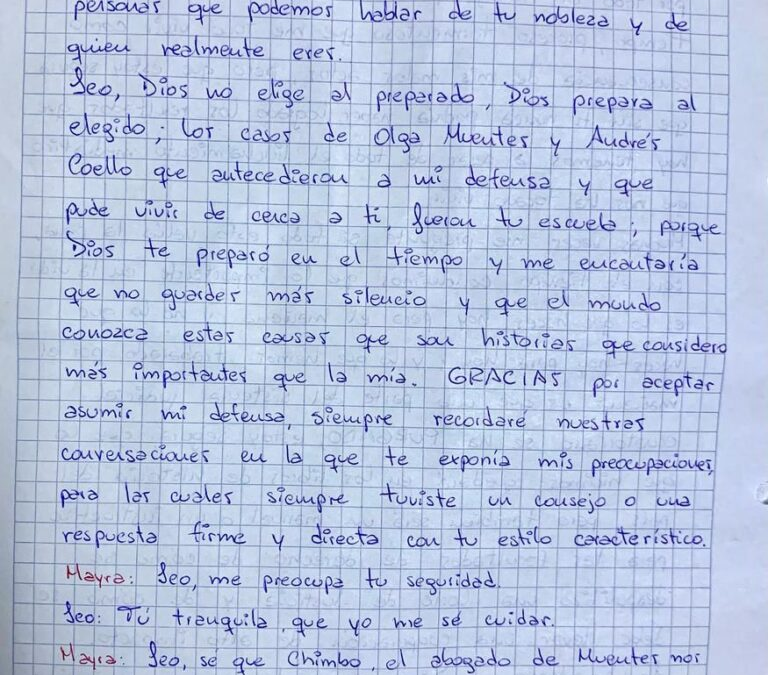 personas que podemos hablar de tu nobleza y de
quien realmente eres.
Leo, Dios no elige al preparado, Dios prepara al
elegido; los casos de Olga Muentes y Andrés
Coello que antecedieron a mi defensa y que
pude vivir de cerca a ti, fueron tu escuela; porque
Dios te preparó en el tiempo y me encantaría
que no guardes más silencio y que el mundo
conozca estas causas que son historias que considero
más importantes que la mía. GRACIAS por aceptar
asumir mi defensa, siempre recordaré nuestras
conversaciones en la que te exponía mis preocupaciones,
para las cuales siempre tuviste un consejo o una
respuesta firme y directa con tu estilo característico.
Mayra: Leo, me preocupa tu seguridad.
Leo: Tú tranquila, que yo me sé cuidar.
Mayra: Leo, sé que Chimbo, el abogado de Muentes nos